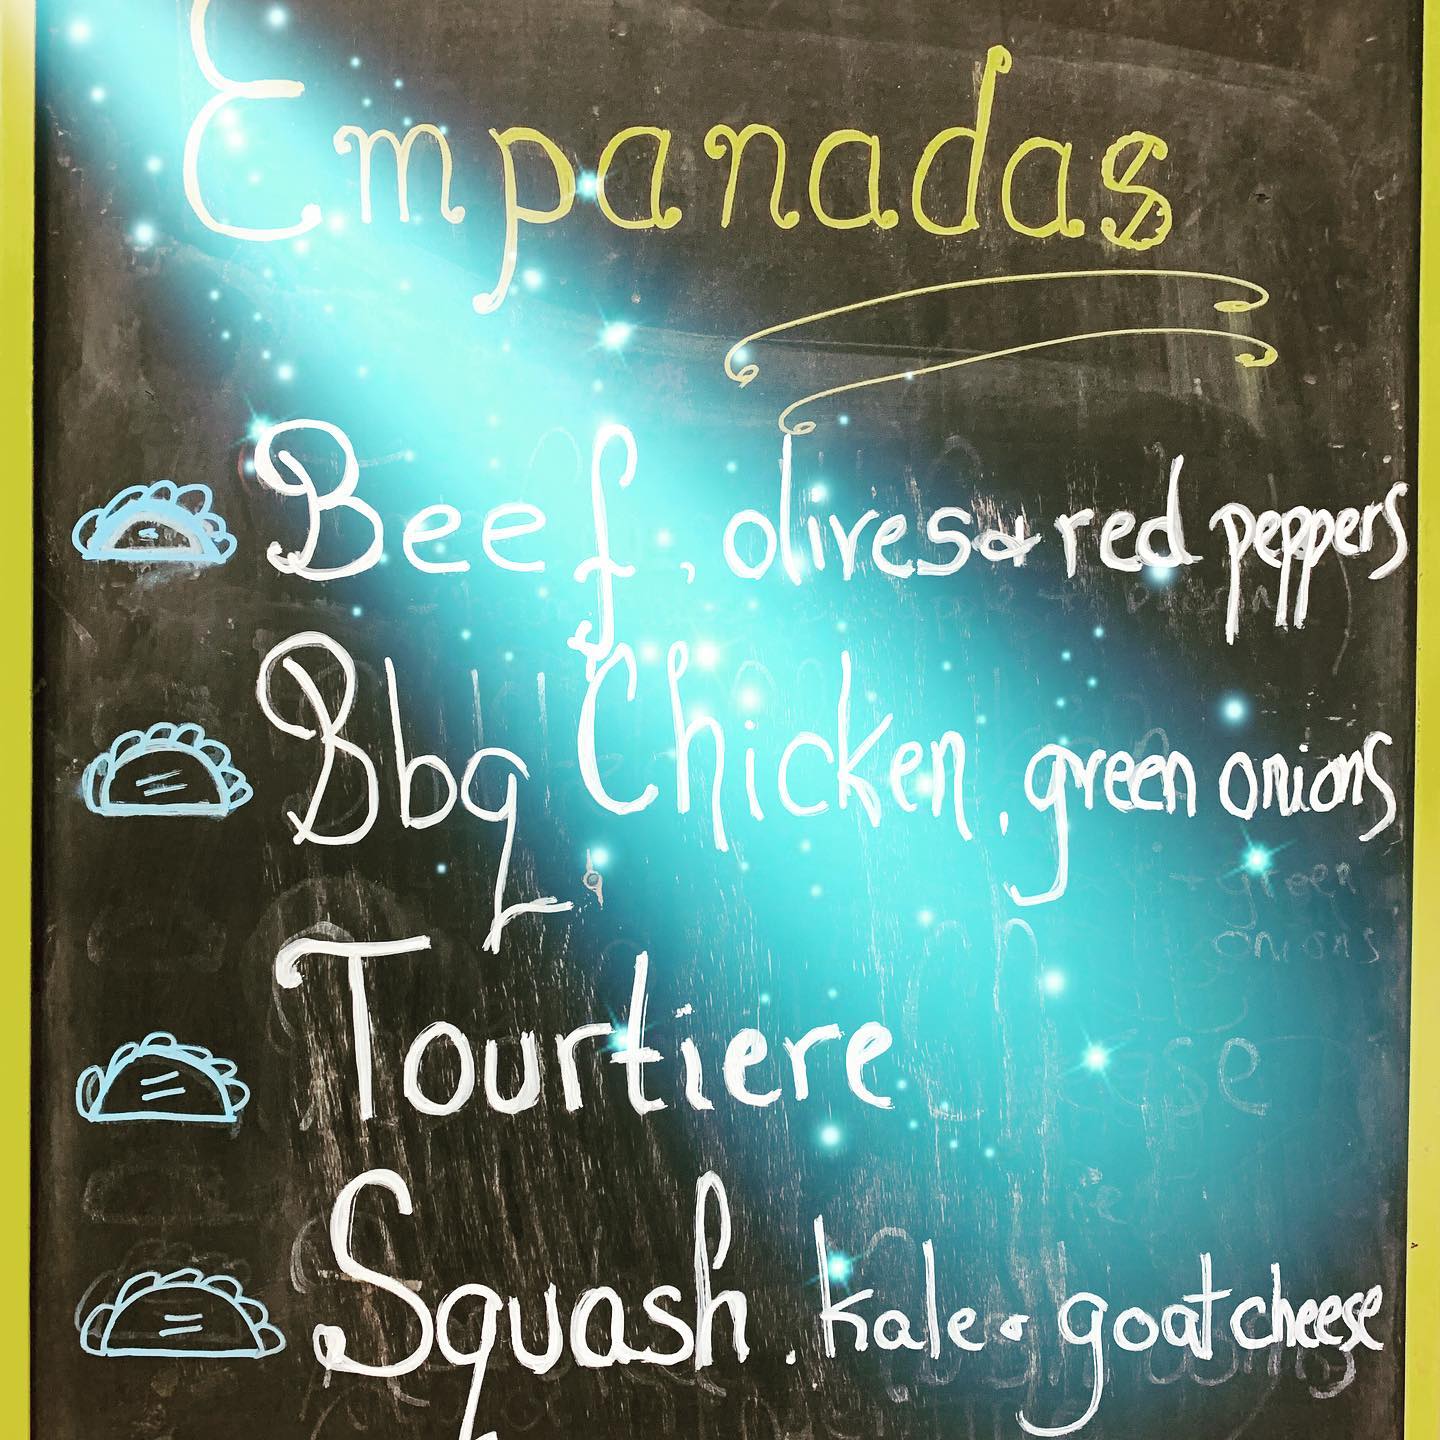 Empanadas
Beef, olives & red peppers
Bbq Chicken, green onions
Tourtiere
Squash, kale & goat cheese